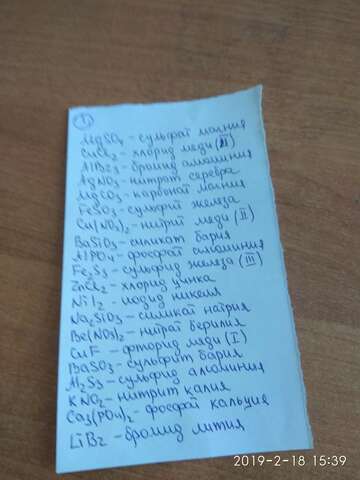 1
MgSO4 - сульфат магния
CuCl2 - хлорид меди (II)
AlBr3 - бромид алюминия
AgNO3 - нитрат серебра
MgCO3 - карбонат магния
FeSO3 - сульфит железа
Cu(NO2)2 - нитрит меди (II)
BaSiO3 - силикат бария
AlPO4 - фосфат алюминия
Fe2S3 - сульфид железа (III)
ZnCl2 - хлорид цинка
NiI2 - иодид никеля
Na2SiO3 - силикат натрия
Be(NO3)2 - нитрат берилия
CuF - фторид меди (I)
BaSO3 - сульфит бария
Al2S3 - сульфид алюминия
KNO2 - нитрит калия
Ca3(PO4)2 - фосфат кальция
LiBr - бромид лития
2019-2-18 15:39